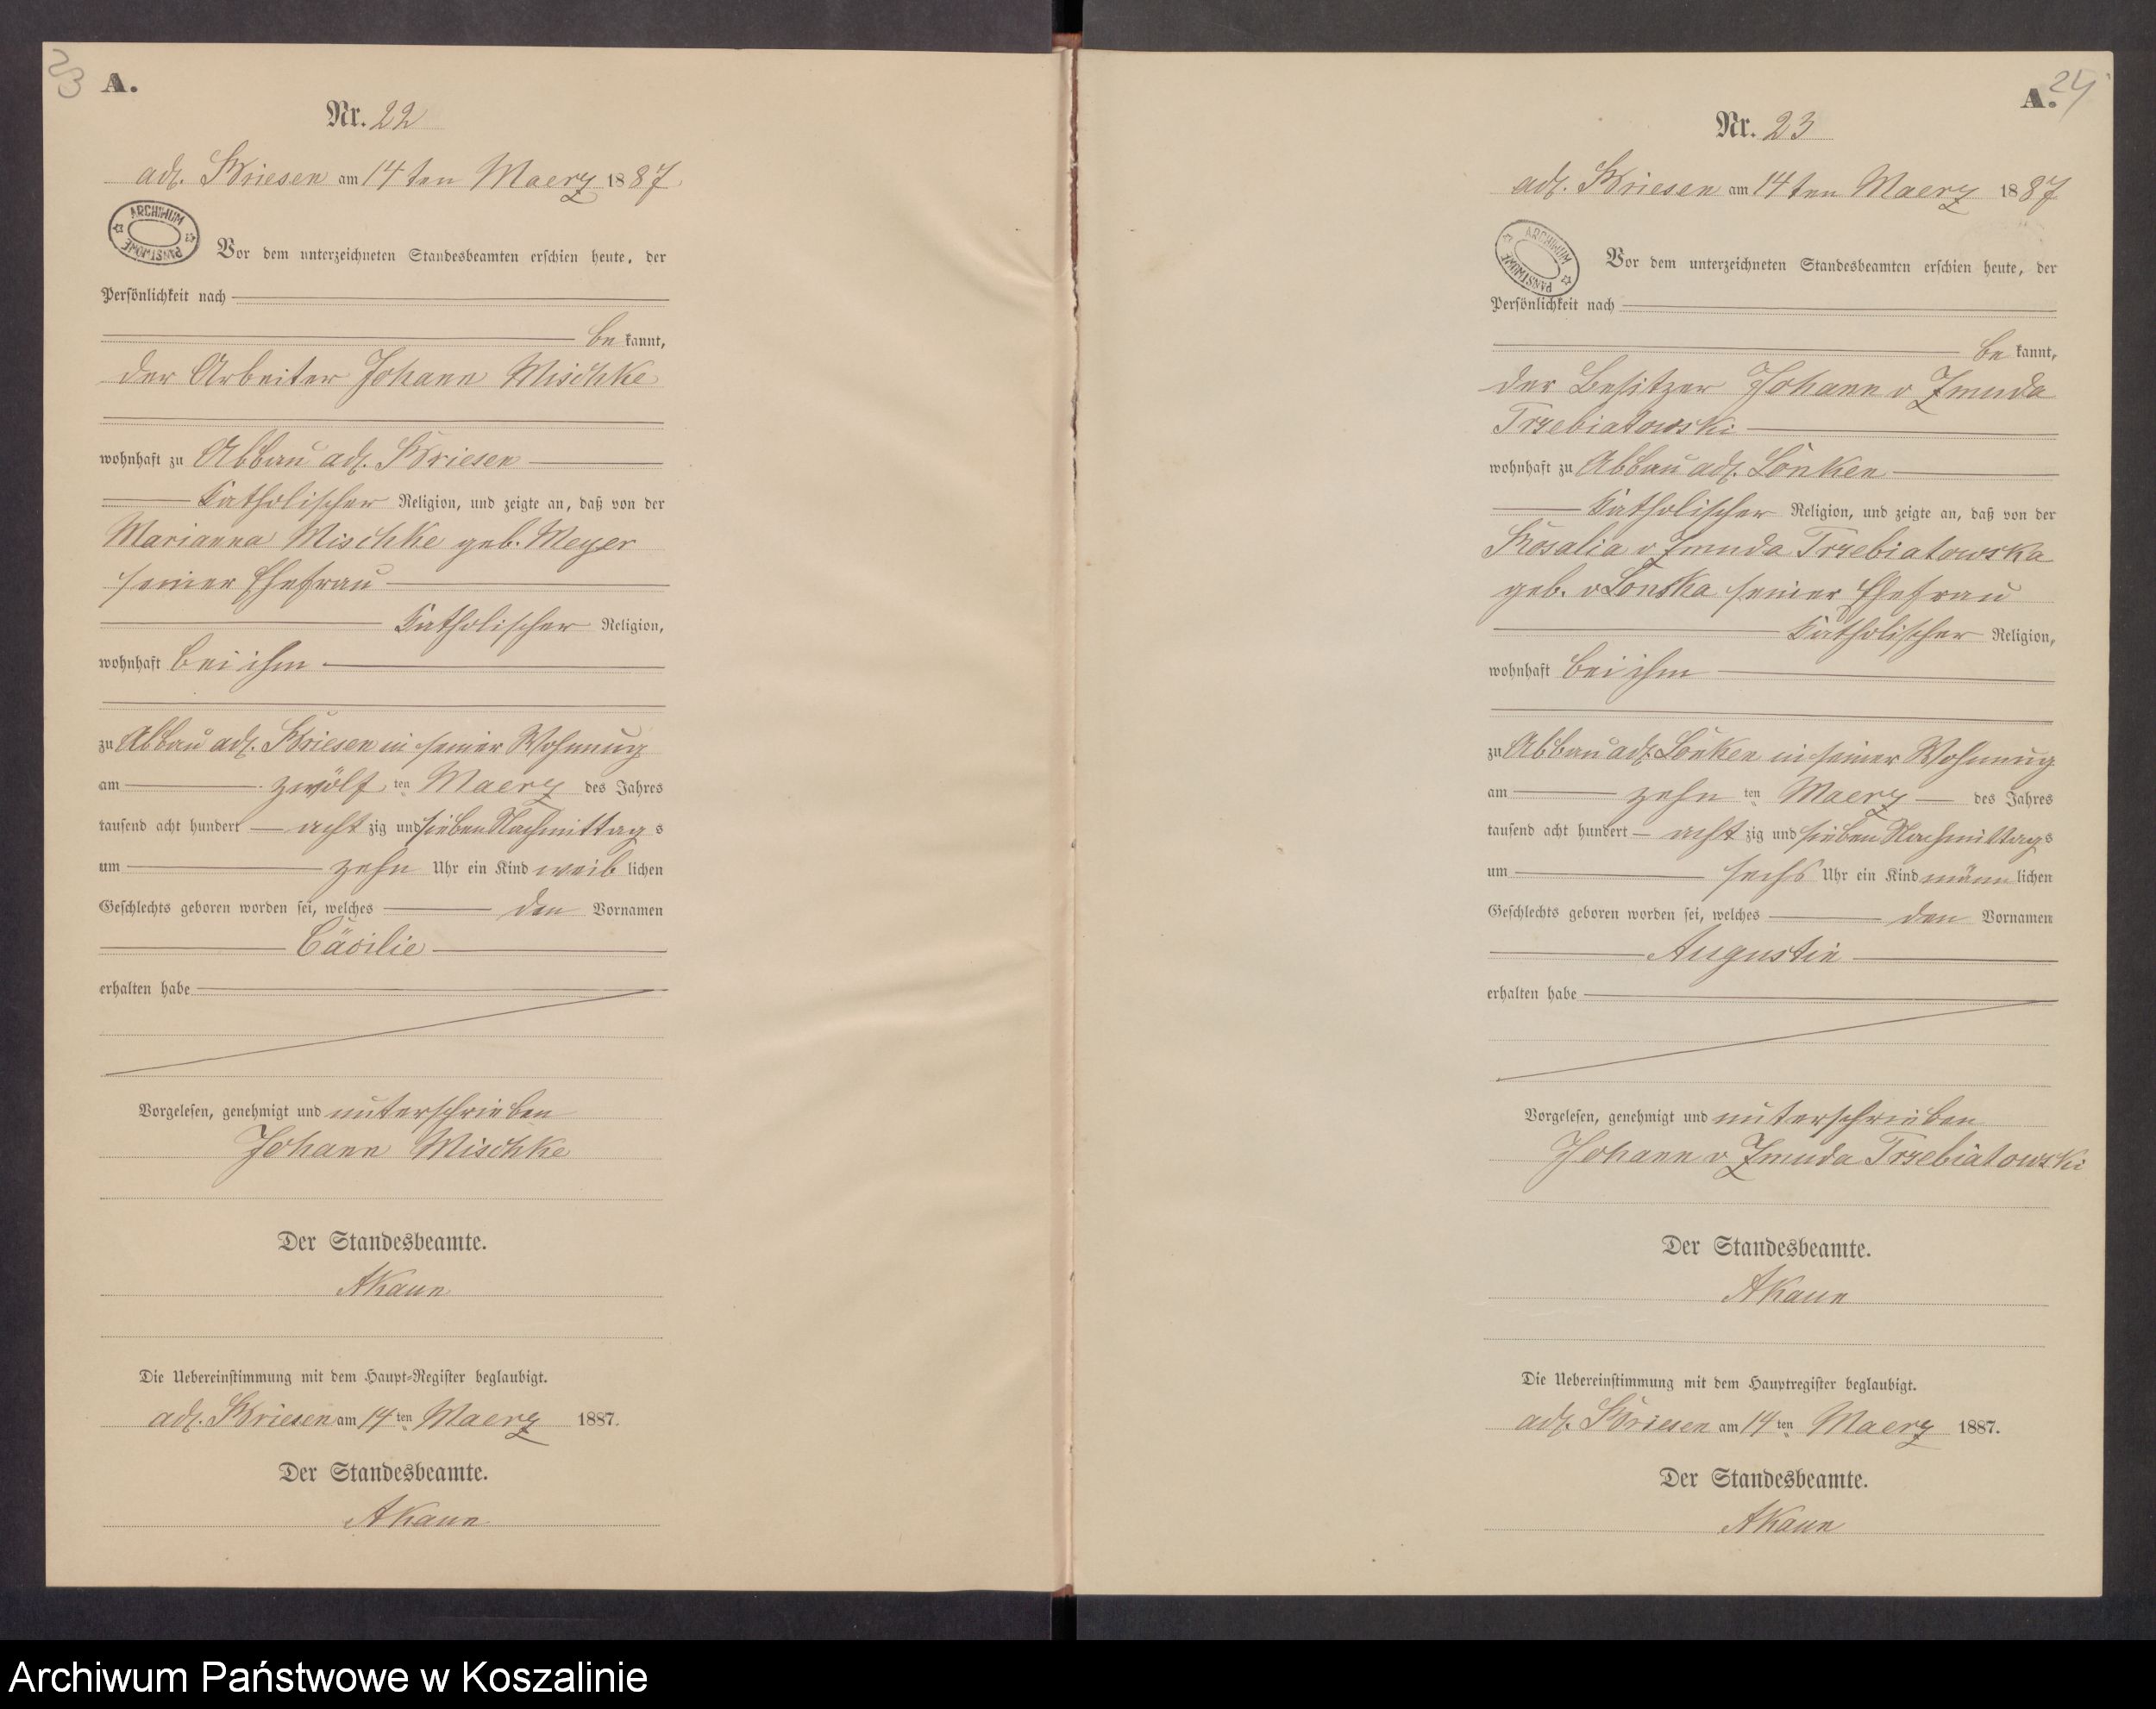 23
A.
Nr. 22
adl. Briesen am 14 ten Maerz 1887.
ARCHIWUM PAŃSTWOWE
Vor dem unterzeichneten Standesbeamten erschien heute, der
Persönlichkeit nach
be kannt,
der Arbeiter Johann Mischke
wohnhaft zu Abbau adl. Briesen
Katholischer Religion, und zeigte an, daß von der
Marianna Mischke geb. Meyer
seiner Ehefrau
Katholischer Religion,
wohnhaft bei ihm
zu Abbau adl. Briesen in seiner Wohnung
am zwölf ten Maerz des Jahres
tausend acht hundert acht zig und sieben Nachmittag s
um zehn Uhr ein Kind weib lichen
Geschlechts geboren worden sei, welches den Vornamen
Cäcilie
erhalten habe
Vorgelesen, genehmigt und unterschrieben
Johann Mischke
Der Standesbeamte.
AKaun
Die Uebereinstimmung mit dem Haupt-Register beglaubigt.
adl. Briesen am 14 ten Maerz 1887.
Der Standesbeamte.
AKaun.
24
A.
Nr. 23
adl. Briesen am 14 ten Maerz 1887
ARCHIWUM PAŃSTWOWE
Vor dem unterzeichneten Standesbeamten erschien heute, der
Persönlichkeit nach
be kannt,
der Besitzer Johann v Zmuda
Trzebiatowski
wohnhaft zu Abbau adl. Lonken
Katholischer Religion, und zeigte an, daß von der
Rosalia v Zmuda Trzebiatowska
geb. v Lonska seiner Ehefrau
Katholischer Religion,
wohnhaft bei ihm
zu Abbau adl. Lonken in seiner Wohnung
am zehn ten Maerz des Jahres
tausend acht hundert acht zig und sieben Nachmittag s
um sechs Uhr ein Kind männ lichen
Geschlechts geboren worden sei, welches den Vornamen
Augustin
erhalten habe
Vorgelesen, genehmigt und unterschrieben
Johann v Zmuda Trzebiatowski
Der Standesbeamte.
AKaun
Die Uebereinstimmung mit dem Hauptregister beglaubigt.
adl. Briesen am 14 ten Maerz 1887.
Der Standesbeamte.
AKaun
Archiwum Państwowe w Koszalinie